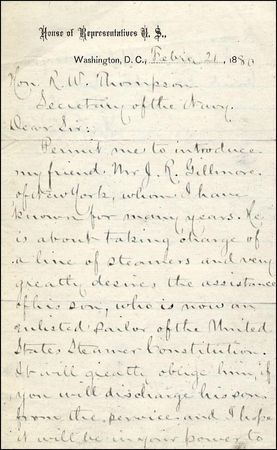 House of Representatives U. S.,
Washington, D. C., Feb'ra 21, 1880
Hon. R. W. Thompson
Secretary of the Navy.
Dear Sir:
Permit me to introduce
my friend Mr J. R. Gillmore
of New York, whom I have
known for many years. He
is about taking charge of
a line of steamers and very
greatly desires the assistance
of his son, who is now an
enlisted sailor of the United
States Steamer Constitution.
It will greatly oblige him, if
you will discharge his son
from the service and I hope
it will be in your power to